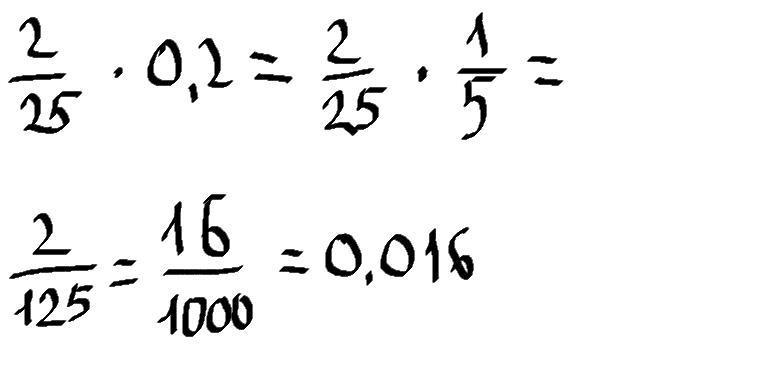 2/25 · 0,2 = 2/25 · 1/5 =
2/125 = 16/1000 = 0,016